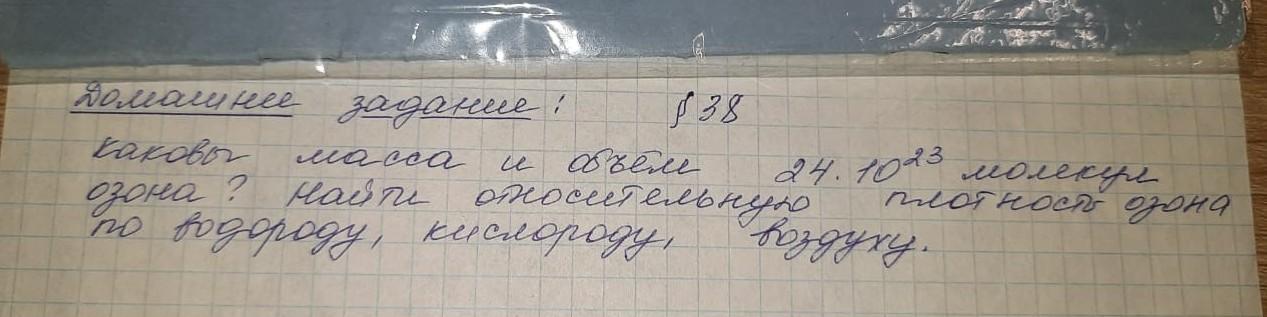 Домашнее задание: § 38
каковы масса и объём 24·10²³ молекул
озона? Найти относительную плотность озона
по водороду, кислороду, воздуху.